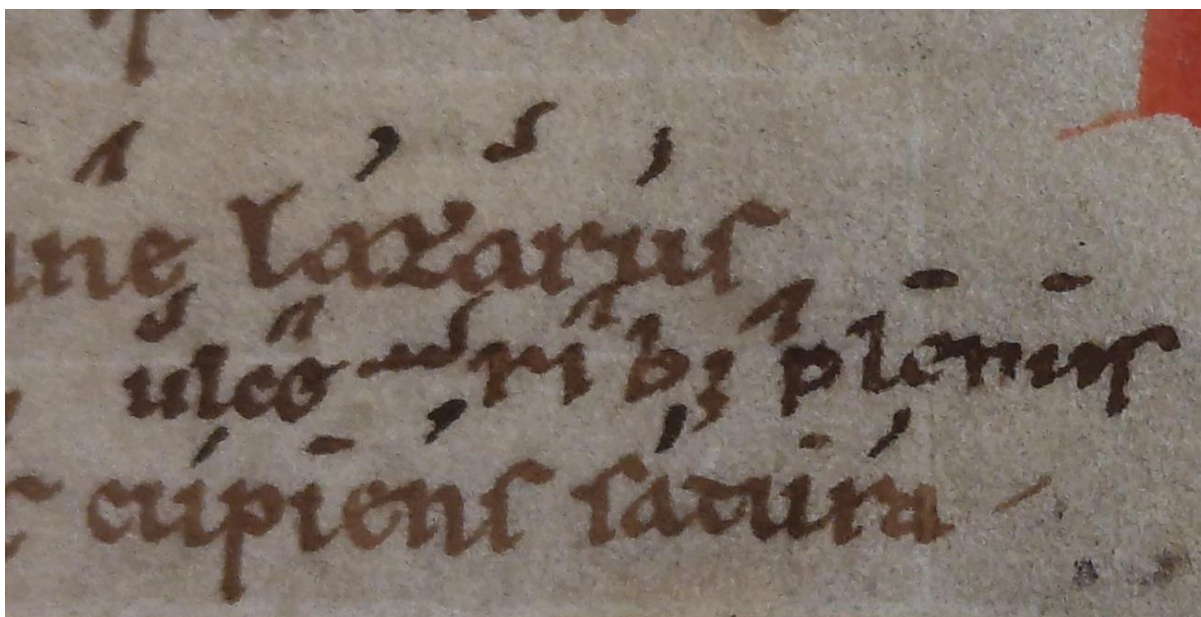 lazarus
ulceribꝫ plenus
cupiens satura